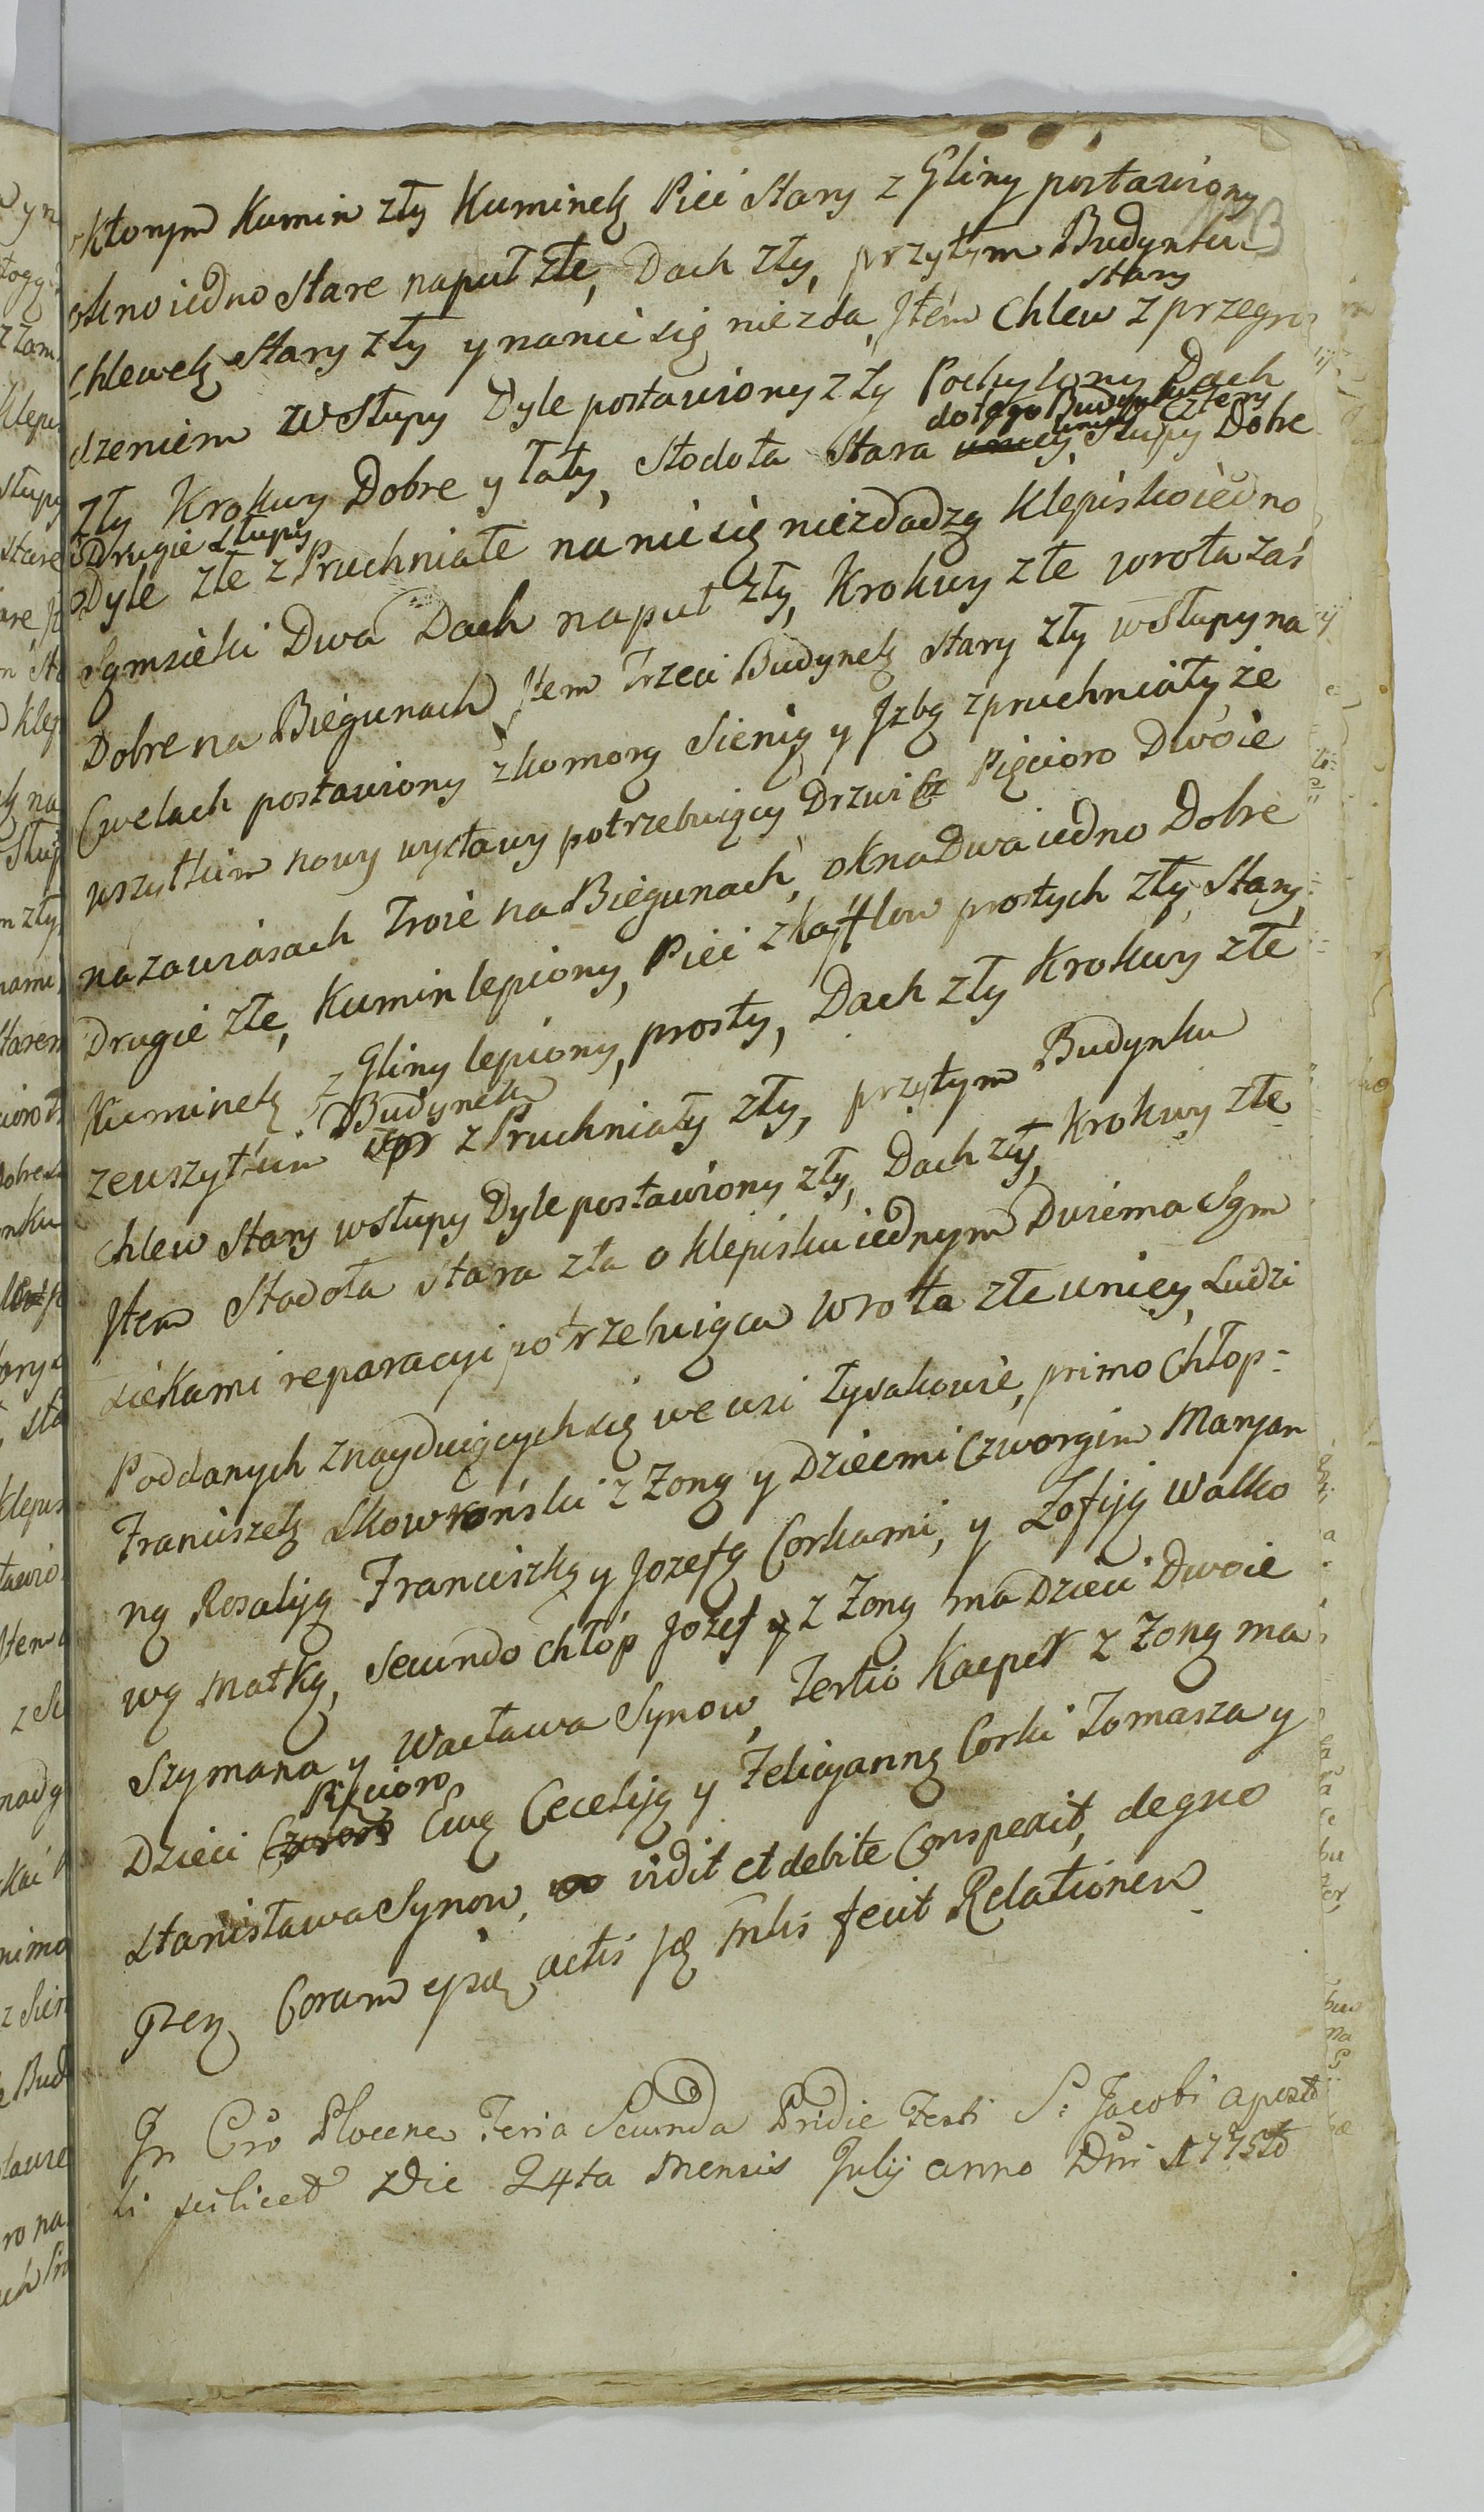 Ktorym Kumin zły Kuminek Piec Stary z Gliny postawiony
okno iedno Stare naput złe, Dach zły, przytym Budynku
Chlewek Stary zły y nanic się niezda, Jtem Chlew stary z przegro
dzeniem w Słupy Dyle postawiony zły Pochylony Dach
Zły Krokwy Dobre y Łaty, Stodoła Stara do tego Budynku Cztery Słupy Dobre
Drugie słupy
Dyle złe zPruchniałe nanic się niezdadzą Klepisko iedno
Sąmsieki Dwa Dach naput zły, Krokwy złe wrota zaś
Dobre na Biegunach Jtem Trzeci Budynek stary zły w Słupy na
Cwelach postawiony z komorą Sienią y Jzbą zpruchniały, że
wszytkim nowy wystawy potrzebuiący Drzwi Pięcioro Dwoie
na zawiasach Troie na Biegunach, okna Dwa iedno Dobre
Drugie złe, Kumin lepiony, Piec z kafflow prostych zły, Stary,
Kuminek z Gliny lepiony, prosty, Dach zły Krokwy złe
ze wszytkim Budynek zPruchniały zły, przytym Budynku
Chlew Stary w Słupy Dyle postawiony zły, Dach zły, Krokwy złe
Jtem Stodoła Stara zła o klepisku iednym Dwiema Sąm
siekami reparacyi potrzebuiąca Wrota złe uniey, Ludzi
Poddanych znayduiących się we wsi Łysakowie, primo Chłop=
Franciszek Skowroński z Zoną y Dziecmi Czworgim Maryan
ną Rosaliją Franciszką y Jozefą Corkami, y Zofiją Walko
wą Matką, Secundo Chłóp Jozef z Zoną ma Dzieci Dwoie
Szymana y Wacława Synow, Tertio Kacper z Zoną ma
Dzieci Pięcioro Ewę Ceceliję y Felicyannę Corki Tomasza y
Stanisława Synow, vidit et debite Conspexit, de qno
Pzen Coram offo actis fecit Relationem
Jn Cro Plocen Feria Secunda Pridie Festi S: Jacobi apost
li scilicet Die 24ta Mensis Julij anno Dni 1775to